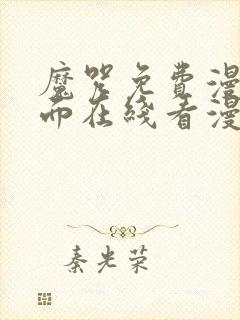 魔咒免费漫
而在线看漫
秦光荣